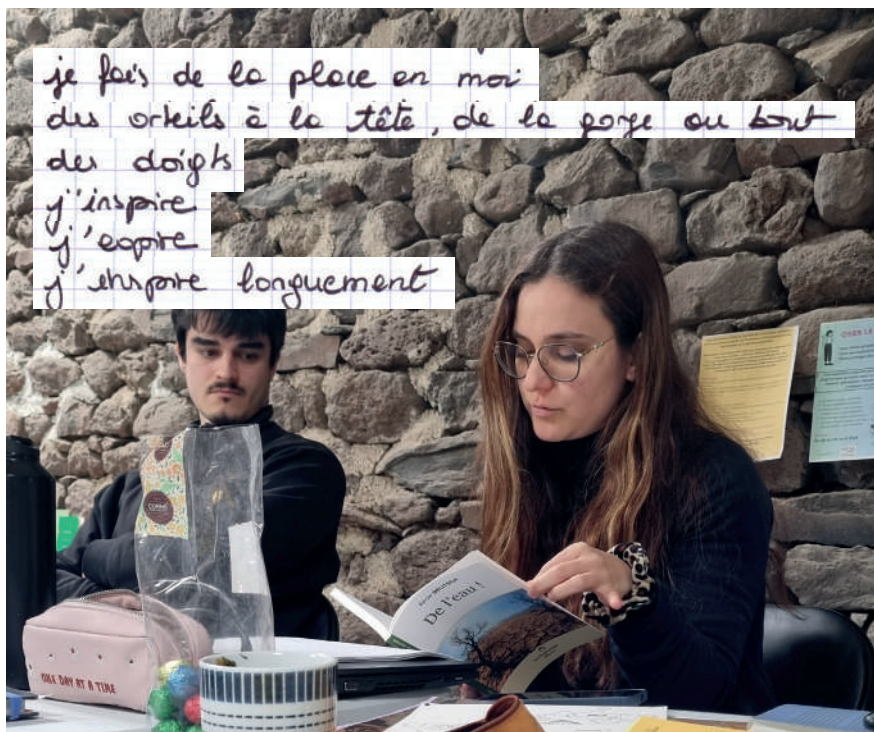 je fais de la place en moi
des orteils à la tête, de la gorge au bout
des doigts
j'inspire
j'expire
j'inspire longuement
De l'eau !
ONE DAY AT A TIME